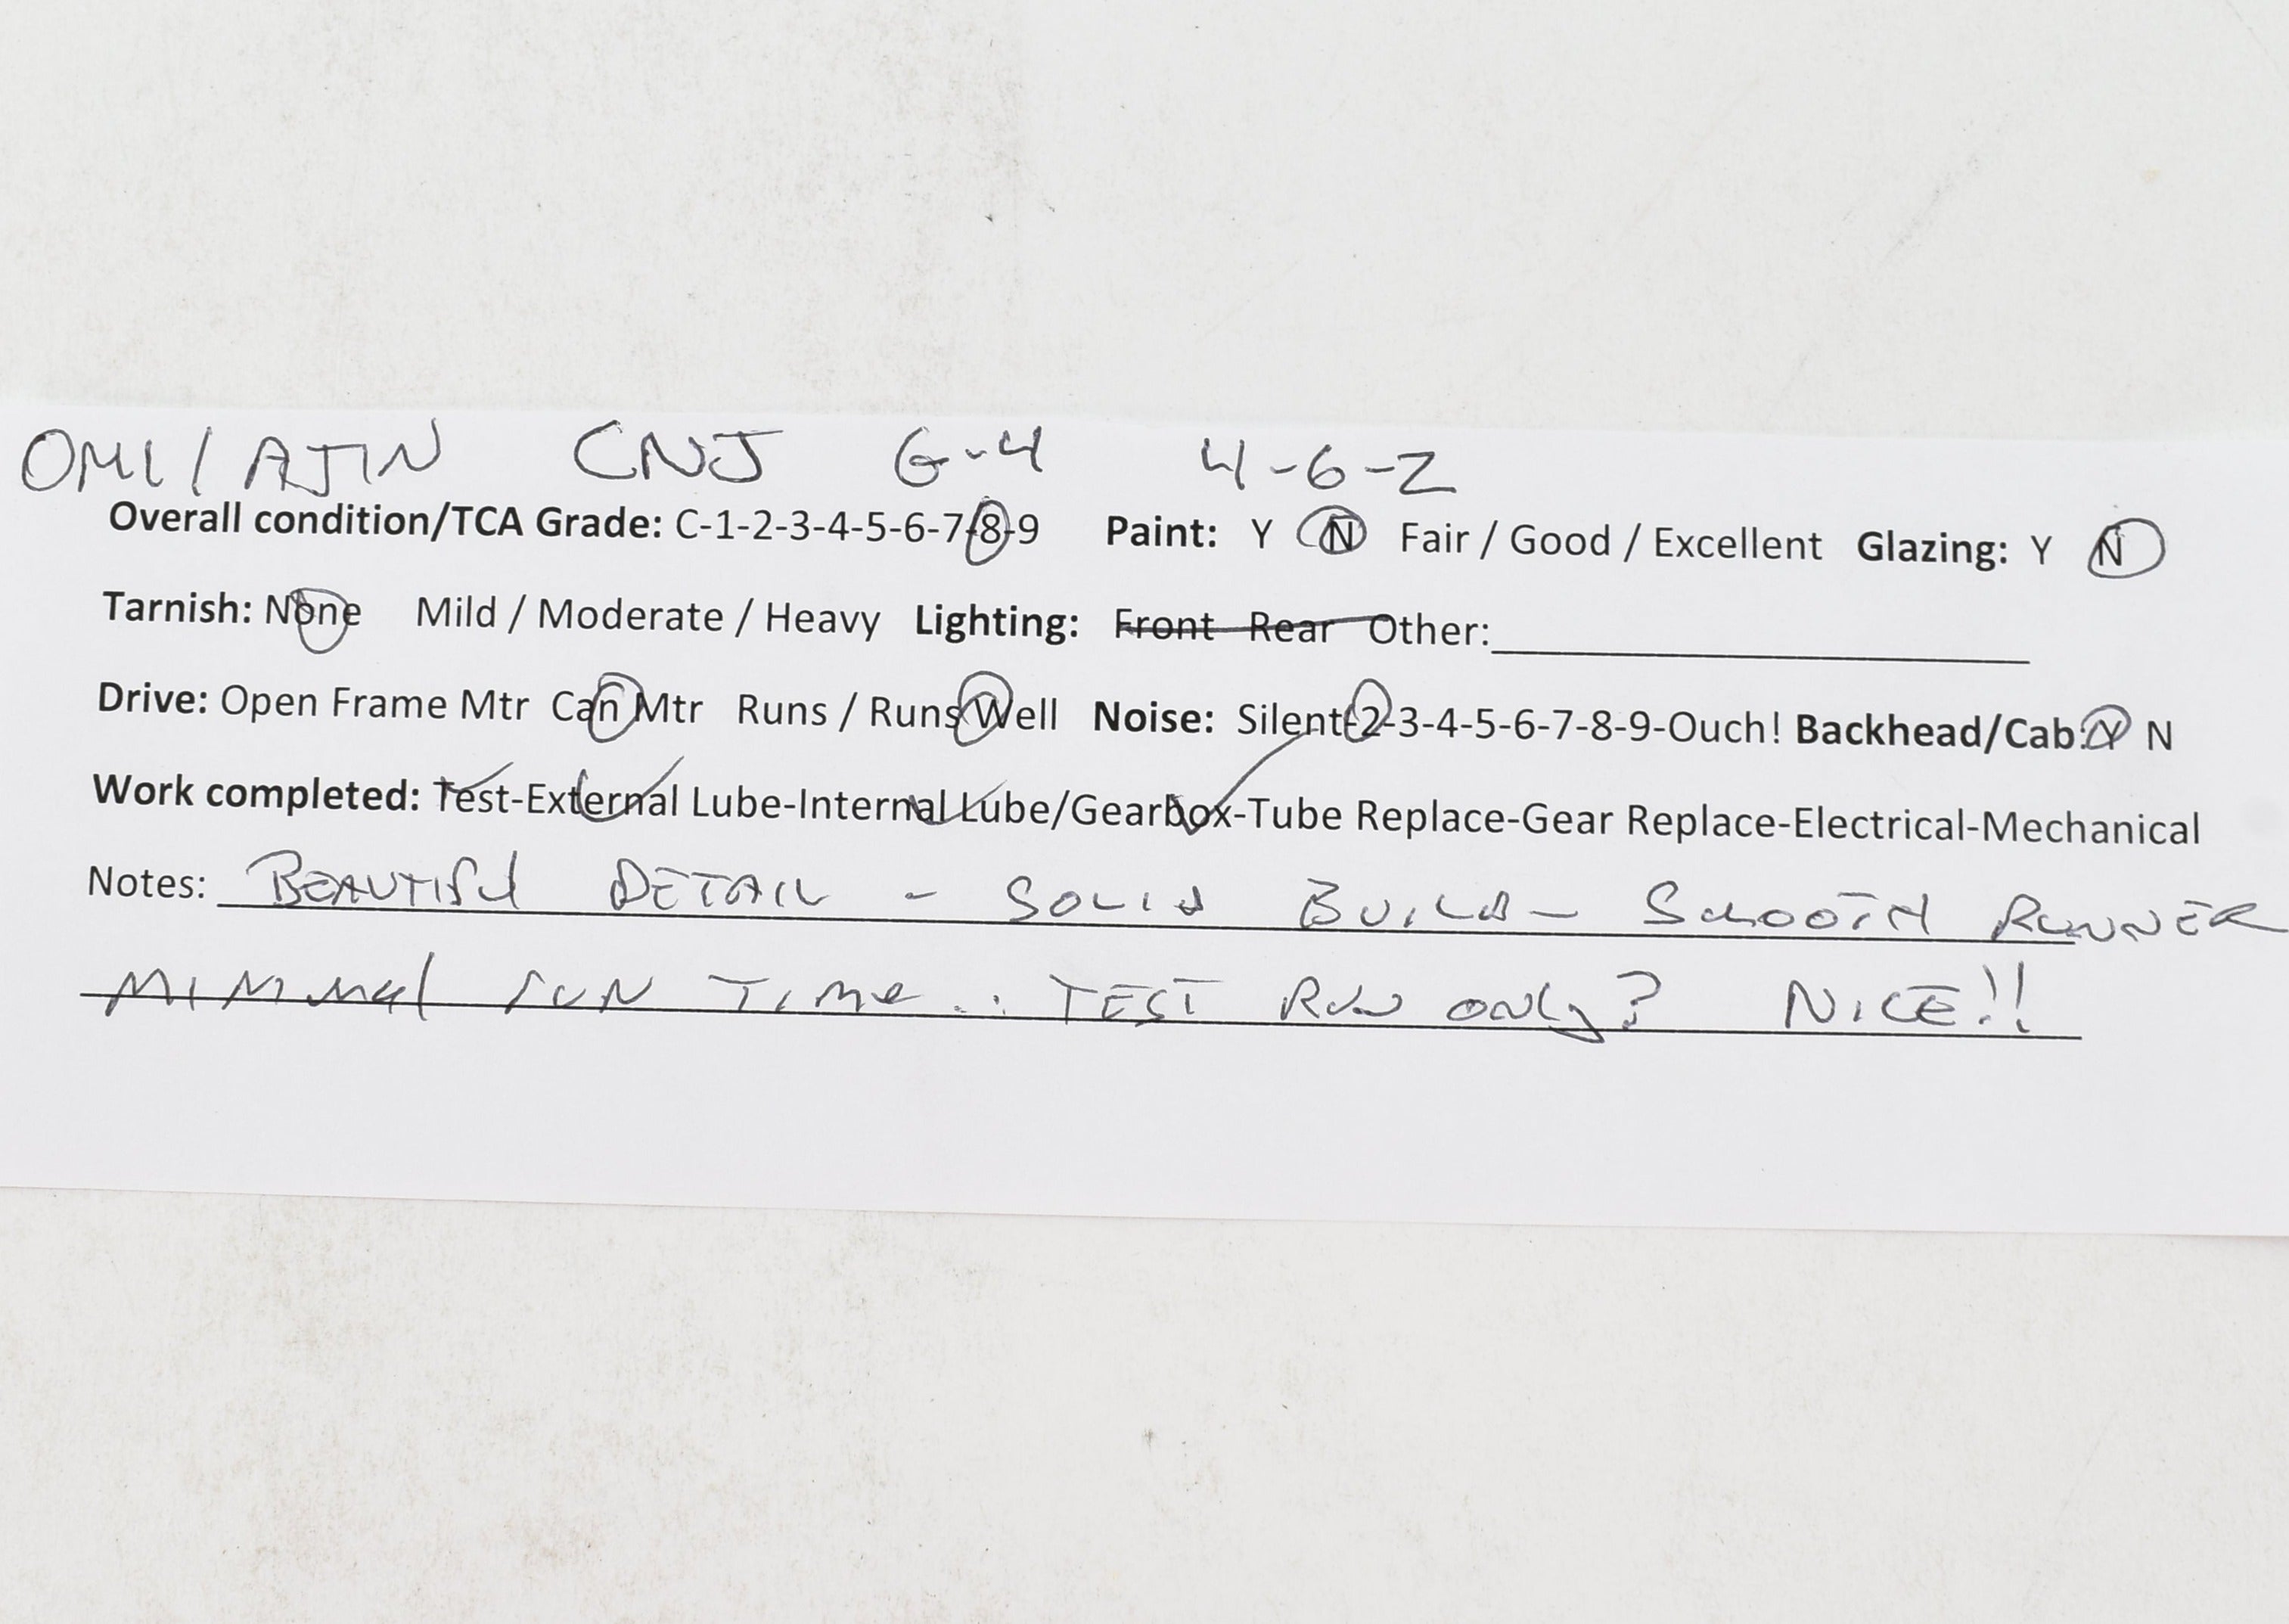 OMI/AJIN CNJ G-4 4-6-2
Overall condition/TCA Grade: C-1-2-3-4-5-6-7-8-9 Paint: Y N Fair / Good / Excellent Glazing: Y N
Tarnish: None Mild / Moderate / Heavy Lighting: Front Rear Other:
Drive: Open Frame Mtr Can Mtr Runs / Runs Well Noise: Silent-2-3-4-5-6-7-8-9-Ouch! Backhead/Cab: Y N
Work completed: Test-External Lube-Internal Lube/Gearbox-Tube Replace-Gear Replace-Electrical-Mechanical
Notes: BEAUTIFUL DETAIL - SOLID BUILD - SMOOTH RUNNER
MINIMAL RUN TIME.. TEST RUN ONLY? NICE!!